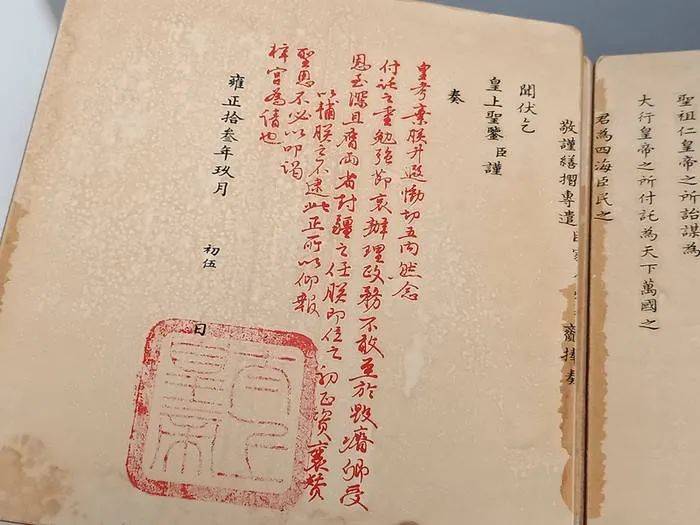 聖祖仁皇帝之所詒謀為
大行皇帝之所付託為天下萬國之
君為四海臣民之
敬謹繕摺專遣臣家齎捧奏
聞伏乞
皇上聖鑒臣謹
奏
皇考棄朕升遐慟切五內然念
付託之重勉強節哀辦理政務不敢至於毀瘠卿受
恩至深且膺兩省封疆之任朕即位之初正資襄贊
以輔朕之不逮此正所以仰報
聖恩不必以叩謁
梓宮為請也
雍正拾叁年玖月初伍日